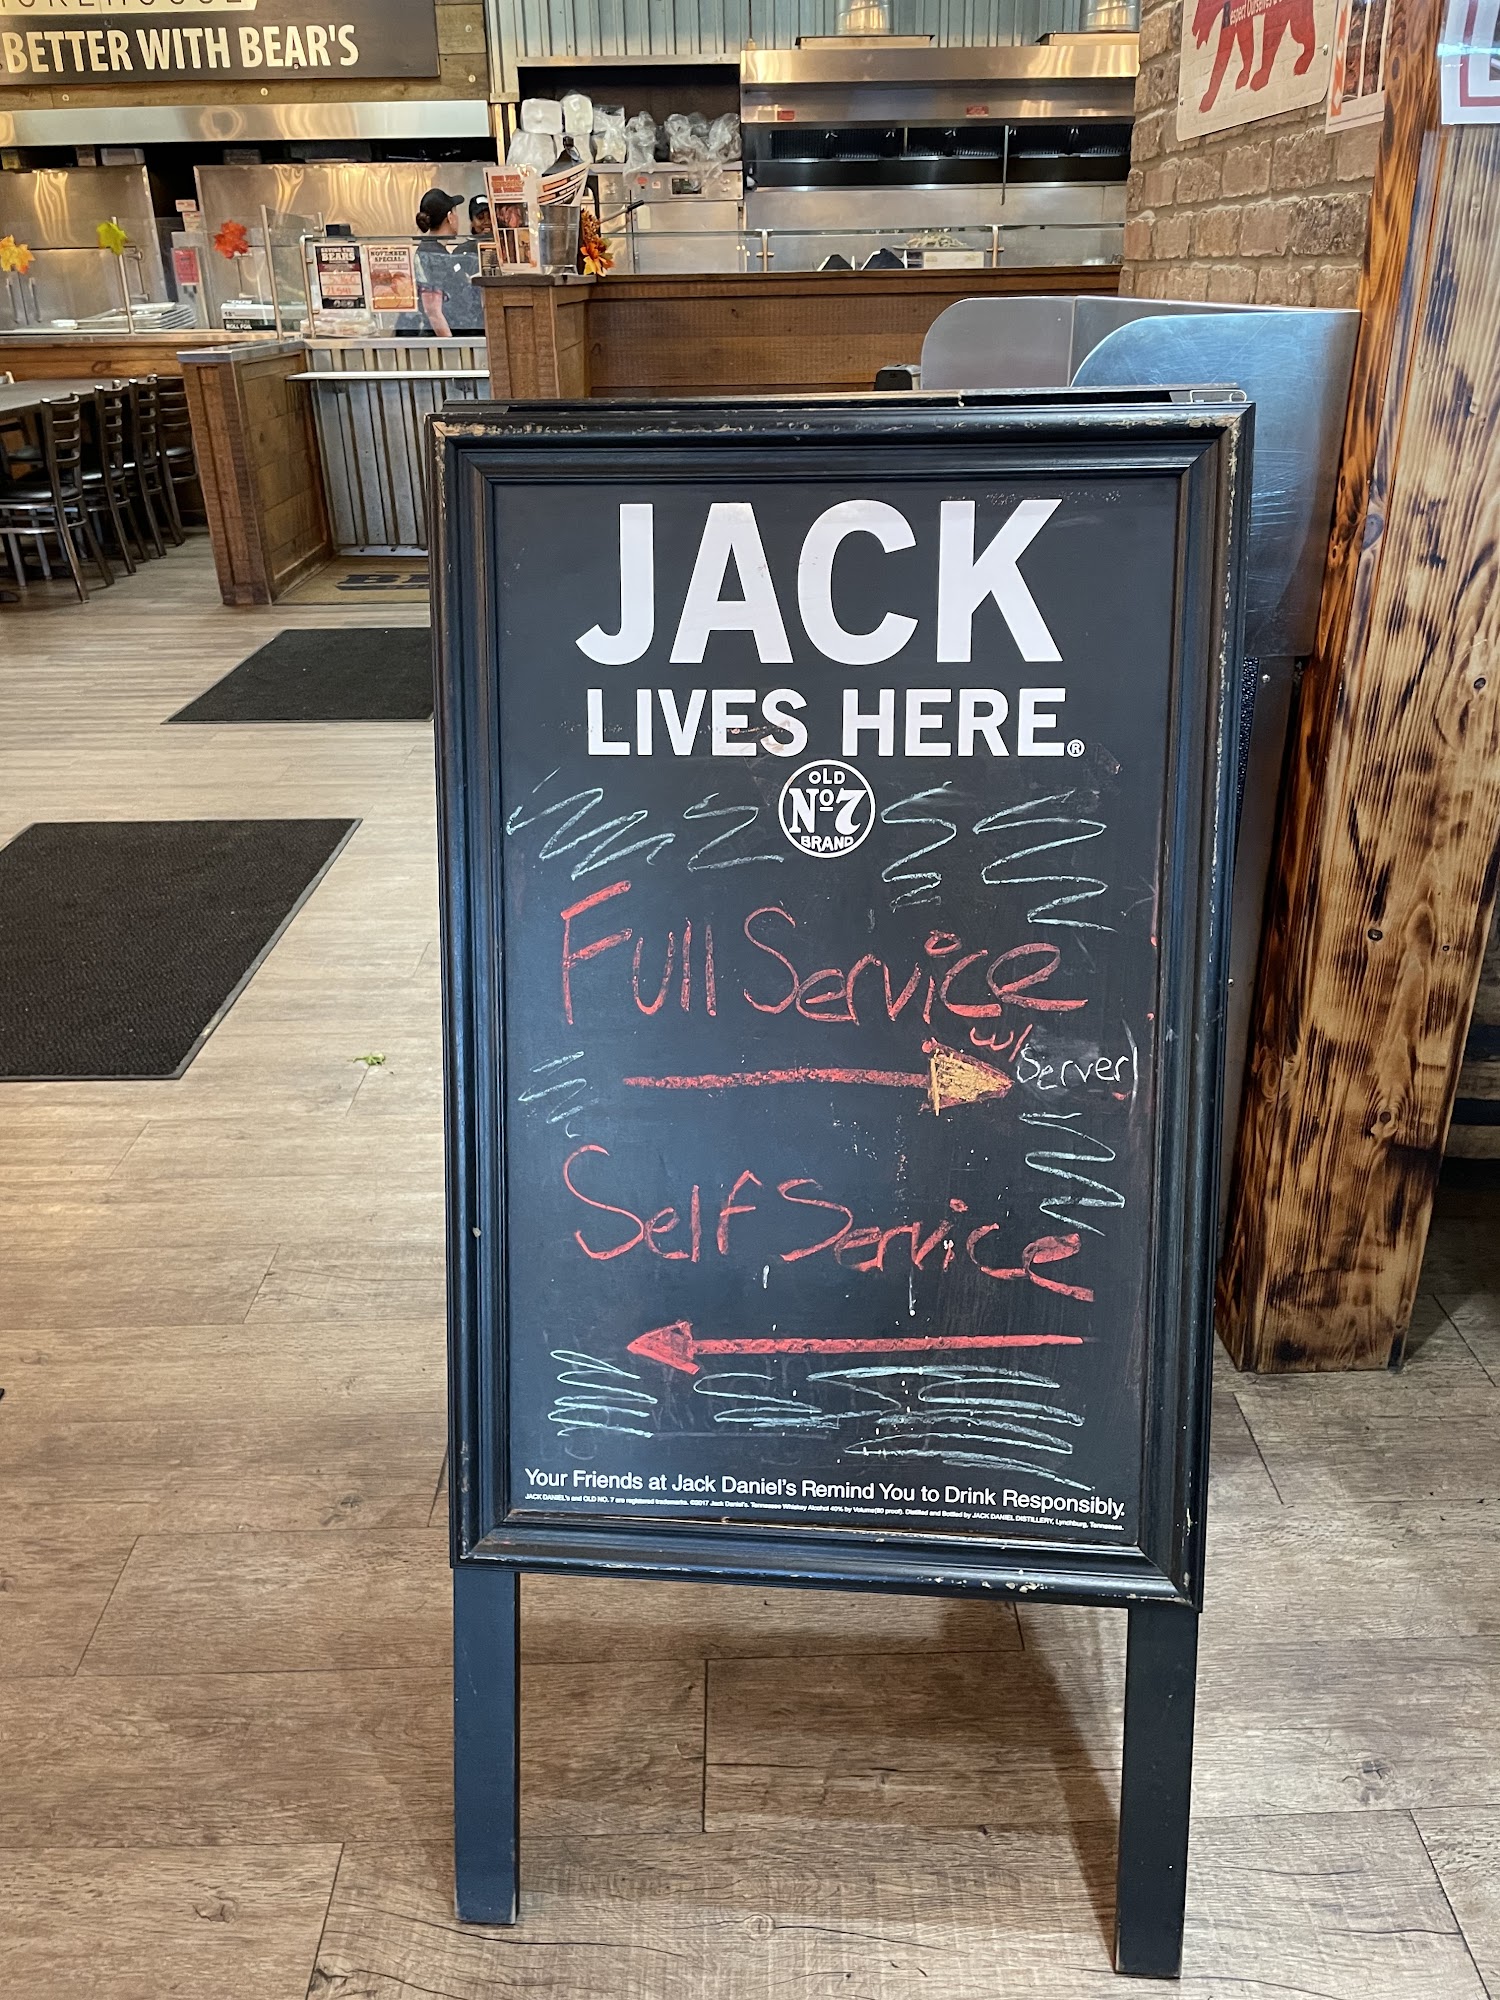 BETTER WITH BEAR'S
BEARS
NOVEMBER
SPECIAL
JACK
LIVES HERE®
OLD
Nº7
BRAND
Full Service
w/ Server
Self Service
Your Friends at Jack Daniel's Remind You to Drink Responsibly.
JACK DANIEL'S and OLD NO. 7 are registered trademarks. ©2017 Jack Daniel's. Tennessee Whiskey Alcohol 40% by Volume (80 proof). Distilled and Bottled by JACK DANIEL DISTILLERY, Lynchburg, Tennessee.